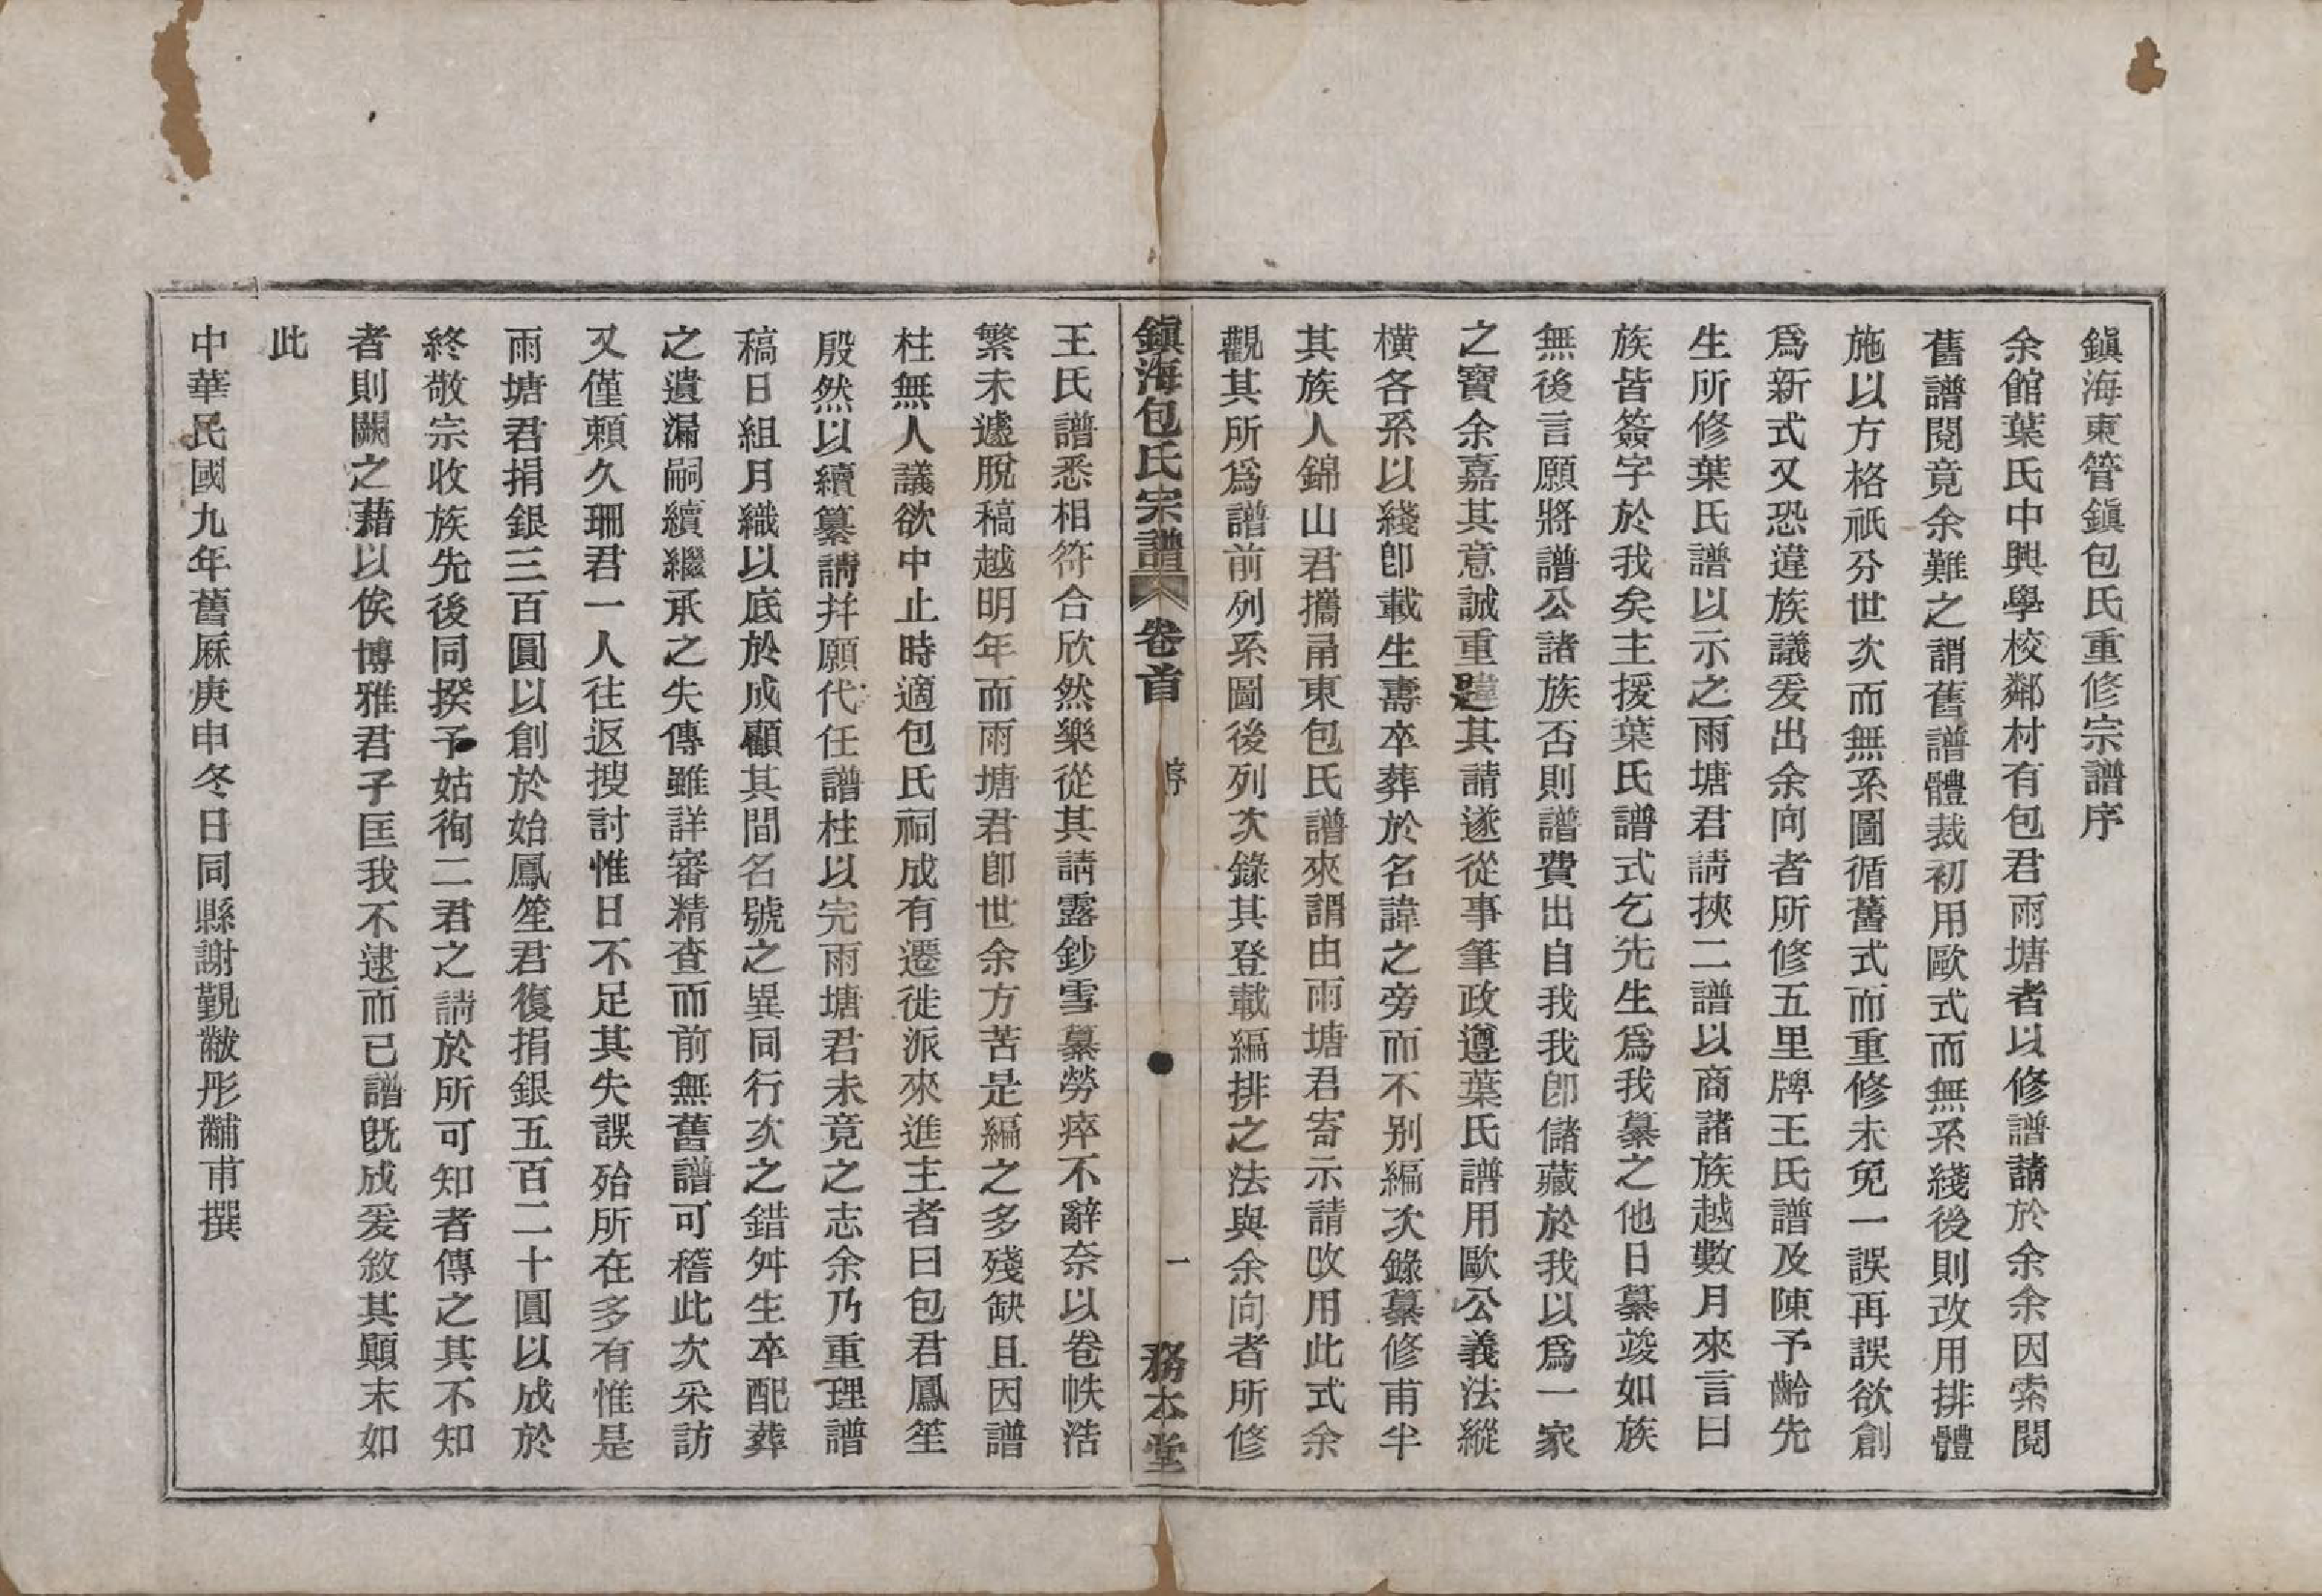 鎭海東管鎭包氏重修宗譜序
余館葉氏中興學校鄰村有包君雨塘者以修譜請於余余因索閱
舊譜閱竟余難之謂舊譜體裁初用歐式而無系綫後則改用排體
施以方格祇分世次而無系圖循舊式而重修未免一誤再誤欲創
爲新式又恐違族議爰出余向者所修五里牌王氏譜及陳予齡先
生所修葉氏譜以示之雨塘君請挾二譜以商諸族越數月來言曰
族皆簽字於我矣主援葉氏譜式乞先生爲我纂之他日纂竣如族
無後言願將譜公諸族否則譜費出自我我卽儲藏於我以爲一家
之寶余嘉其意誠重違其請遂從事筆政遵葉氏譜用歐公義法縱
橫各系以綫卽載生壽卒葬於名諱之旁而不別編次錄纂修甫半
其族人錦山君攜甬東包氏譜來謂由雨塘君寄示請改用此式余
觀其所爲譜前列系圖後列次錄其登載編排之法與余向者所修
鎭海包氏宗譜 卷首 序 一 務本堂
王氏譜悉相符合欣然樂從其請露鈔雪纂勞瘁不辭奈以卷帙浩
繁未遽脫稿越明年而雨塘君卽世余方苦是編之多殘缺且因譜
柱無人議欲中止時適包氏祠成有遷徙派來進主者曰包君鳳笙
殷然以續纂請幷願代任譜柱以完雨塘君未竟之志余乃重理譜
稿日組月織以底於成顧其間名號之異同行次之錯舛生卒配葬
之遺漏嗣續繼承之失傳雖詳審精查而前無舊譜可稽此次采訪
又僅賴久珊君一人往返搜討惟日不足其失誤殆所在多有惟是
雨塘君捐銀三百圓以創於始鳳笙君復捐銀五百二十圓以成於
終敬宗收族先後同揆予姑徇二君之請於所可知者傳之其不知
者則闕之藉以俟博雅君子匡我不逮而已譜旣成爰敘其顚末如
此
中華民國九年舊厤庚申冬日同縣謝覲黻彤黼甫撰